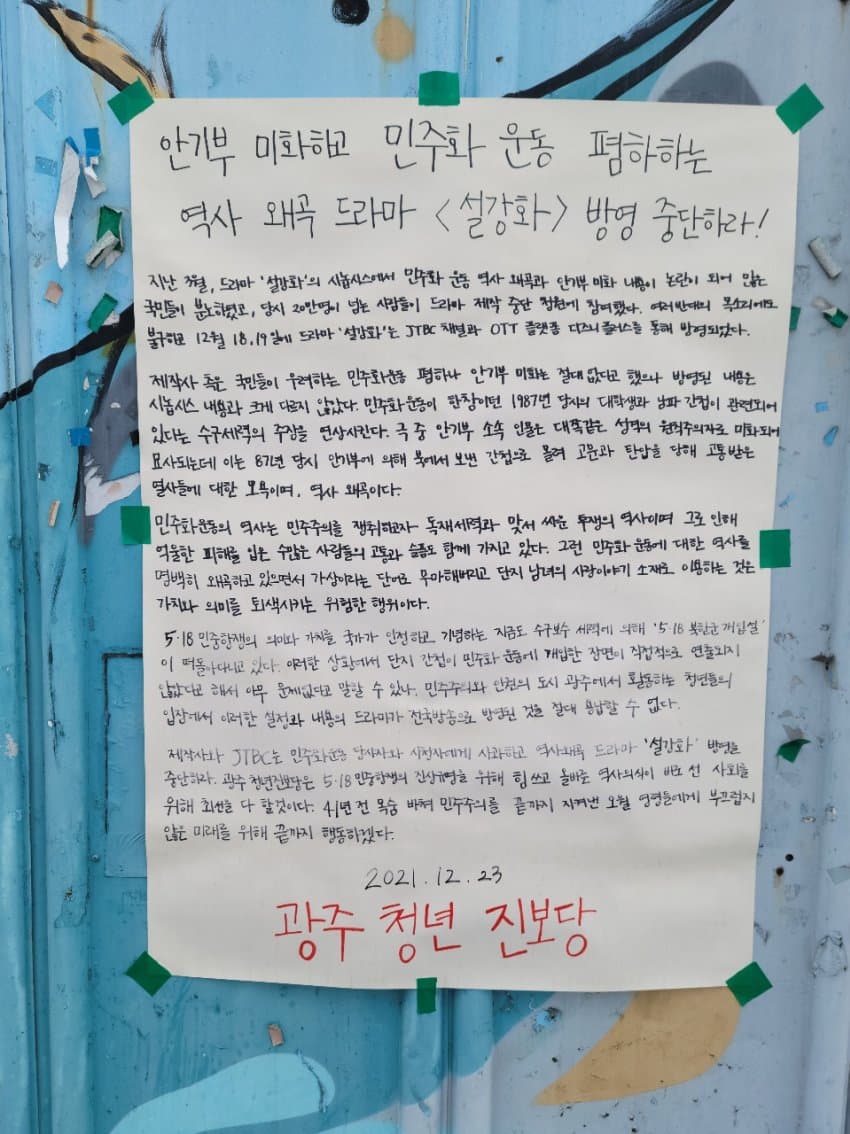 안기부 미화하고 민주화 운동 폄하하는
역사 왜곡 드라마 <설강화> 방영 중단하라!
지난 3월, 드라마 '설강화'의 시놉시스에서 민주화 운동 역사 왜곡과 안기부 미화 내용이 논란이 되어 많은
국민들이 분노하였고, 당시 20만명이 넘는 사람들이 드라마 제작 중단 청원에 참여했다. 여러 반대의 목소리에도
불구하고 12월 18, 19일에 드라마 '설강화'는 JTBC 채널과 OTT 플랫폼 디즈니플러스를 통해 방영되었다.
제작사 측은 국민들이 우려하는 민주화운동 폄하나 안기부 미화는 절대 없다고 했으나 방영된 내용은
시놉시스 내용과 크게 다르지 않았다. 민주화운동이 한창이던 1987년 당시의 대학생과 남파 간첩이 관련되어
있다는 수구세력의 주장을 연상시킨다. 극 중 안기부 소속 인물은 대쪽같은 성격의 원칙주의자로 미화되어
묘사되는데 이는 87년 당시 안기부에 의해 북에서 보낸 간첩으로 몰려 고문과 탄압을 당해 고통받은
열사들에 대한 모욕이며, 역사 왜곡이다.
민주화운동의 역사는 민주주의를 쟁취하고자 독재세력과 맞서 싸운 투쟁의 역사이며 그로 인해
억울한 피해를 입은 수많은 사람들의 고통과 슬픔도 함께 가지고 있다. 그런 민주화 운동에 대한 역사를
명백히 왜곡하고 있으면서 가상이라는 단어로 무마해버리고 단지 남녀의 사랑이야기 소재로 이용하는 것은
가치와 의미를 퇴색시키는 위험한 행위이다.
5·18 민중항쟁의 의미와 가치를 국가가 인정하고 기념하는 지금도 수구보수 세력에 의해 '5·18 북한군 개입설'
이 떠돌아다니고 있다. 이러한 상황에서 단지 간첩이 민주화 운동에 개입한 장면이 직접적으로 연출되지
않았다고 해서 아무 문제없다고 말할 수 있나. 민주주의와 인권의 도시 광주에서 활동하는 청년들의
입장에서 이러한 설정과 내용의 드라마가 전국방송으로 방영된 것을 절대 용납할 수 없다.
제작사와 JTBC는 민주화운동 당사자와 시청자에게 사과하고 역사왜곡 드라마 '설강화' 방영을
중단하라. 광주청년진보당은 5·18 민중항쟁의 진상규명을 위해 힘쓰고 올바른 역사의식이 바로 선 사회를
위해 최선을 다 할것이다. 41년 전 목숨 바쳐 민주주의를 끝까지 지켜낸 오월 영령들에게 부끄럽지
않은 미래를 위해 끝까지 행동하겠다.
2021.12.23
광주 청년 진보당